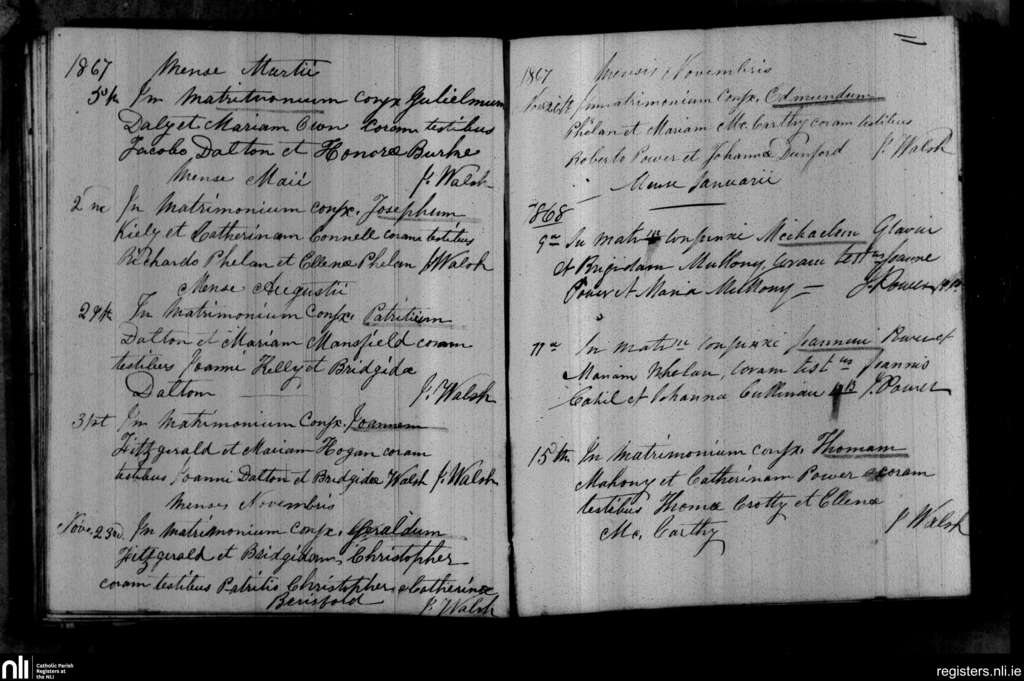 1867 Mense Martii
5th In Matrimonium conjx. Gulielmum
Daly et Mariam Cion coram testibus
Jacobo Dalton et Honoræ Burke
P. Walsh
Mense Maii
2nd In Matrimonium conjx. Josephum
Kiely et Catherinam Connell coram testibus
Richardo Phelan et Ellenæ Phelan P. Walsh
Mense Augustii
29th In Matrimonium conjx. Patritium
Dalton et Mariam Mansfield coram
testibus Joanni Kelly et Bridgidæ
Dalton P. Walsh
31st In Matrimonium conjx. Joannem
Fitzgerald et Mariam Hogan coram
testibus Joanni Dalton et Bridgidæ Walsh P. Walsh
Menses Novembris
Nove. 23rd. In Matrimonium conjx. Geraldum
Fitzgerald et Bridgidam Christopher
coram testibus Patritio Christopher et Catherinæ
Berisfold P. Walsh
1867 Mensis Novembris
26th In matrimonium conjx. Edmundum
Phelan et Mariam Mc. Carthy coram testibus
Roberto Power et Johannæ Dunford P. Walsh
Mense Januarii
1868
9a In mat conjunxi Michaelem Glavin
et Brigidam Mulhony, coram testus Joanne
Power et Maria Mulhony — J. Power
11a In matrm conjunxi Joannem Power et
Mariam Whelan, coram testus Joannis
Cahil et Johanna Cullinan J. Power
15th In Matrimonium conjx. Thomam
Mahony et Catherinam Power coram
testibus Thomæ Crotty et Ellenæ
Mc. Carthy P. Walsh
nli Catholic Parish
Registers at
the NLI
registers.nli.ie